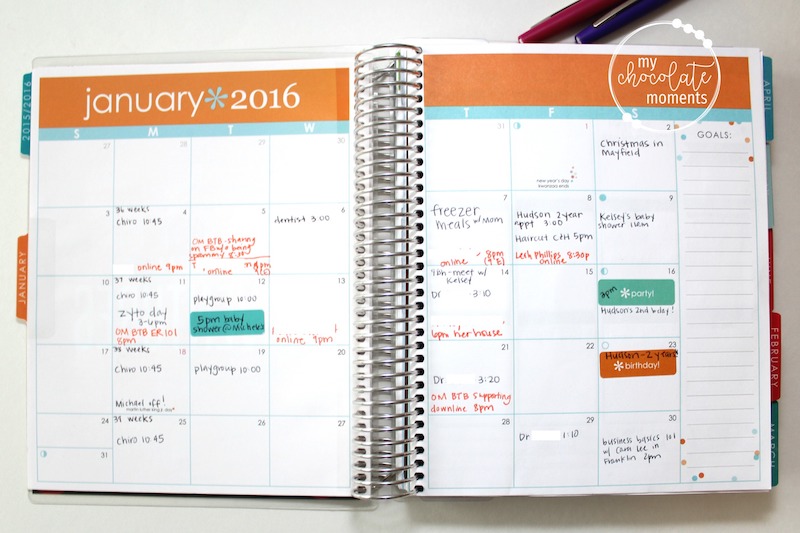 my
chocolate
moments
january*2016
2015/2016
JANUARY
APRIL
FEBRUARY
MARCH
S M T W
T F S
GOALS:
27 28 29 30
31 1 2
new year's day
kwanzaa ends
Christmas in
Mayfield
3 4 5 6
36 weeks
chiro 10:45
online 9pm
OM BTB sharing
on FB w/o being
spammy
online
dentist 3:00
7 8 9
freezer
meals w/Mom
8pm
online
Hudson 2 year
appt 3:00
Haircut C&H 5pm
Leah Phillips 8:30p
online
Kelsey's baby
shower 11am
10 11 12 13
37 weeks
chiro 10:45
zyto day
3-6pm
OM BTB ER 101
8pm
playgroup 10:00
5pm baby
shower@Michele's
online 9pm
14 15 16
meet w/
Kelsey
Dr 3:10
6pm her house
2pm *party!
Hudson's 2nd bday!
17 18 19 20
38 weeks
chiro 10:45
Michael off!
martin luther king jr. day
playgroup 10:00
21 22 23
Dr 3:20
OM BTB supporting
downline 8pm
Hudson-2 years!
*birthday!
24 25 26 27
39 weeks
chiro 10:45
31
28 29 30
Dr 1:10
business basics 101
w/ Cara Lee in
Franklin 2pm